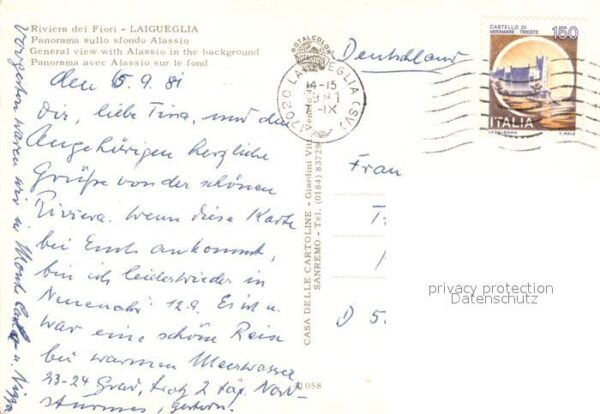 Riviera dei Fiori - LAIGUEGLIA
Panorama sullo sfondo Alassio
General view with Alassio in the background
Panorama avec Alassio sur le fond
den 5.9.81
Dir, liebe Tina, und den
Angehörigen herzliche
Grüße von der schönen
Riviera. Wenn diese Karte
bei Euch ankommt,
bin ich leider wieder in
Neuenahr 12.9. Es ist u.
war eine schöne Reise
bei warmem Meerwasser
23-24 Grad, trotz 2 täg. Nord-
sturmes, gestern.
Vorgestern waren wir in Monte Carlo u. Nizza
11058
CASA DELLE CARTOLINE - Giardini Vitt.
SANREMO - Tel. (0184) 83729
ROTALCOLOR
17020 LAIGUEGLIA (SV)
14-15
Deutschland
CASTELLO DI
MIRAMARE TRIESTE
150
ITALIA
I.P.Z.S. ROMA
T. MELE
Frau
T
D 5
privacy protection
Datenschutz